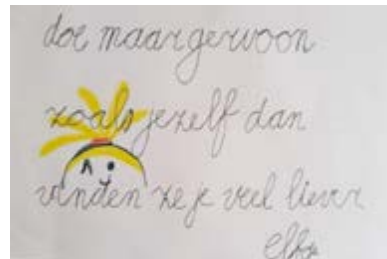 doe maar gewoon
zoals jezelf dan
vinden ze je veel liever